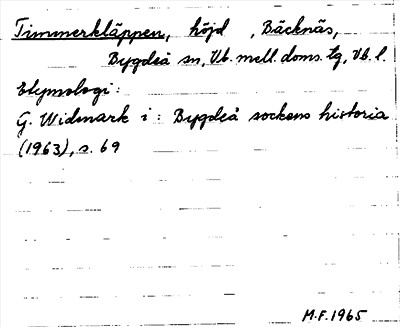 Timmerkläppen, höjd , Bäcknäs,
Bygdeå sn, Vb. mell. doms. tg, Vb. l.
Etymologi:
G. Widmark i: Bygdeå sockens historia
(1963), s. 69
M.F. 1965